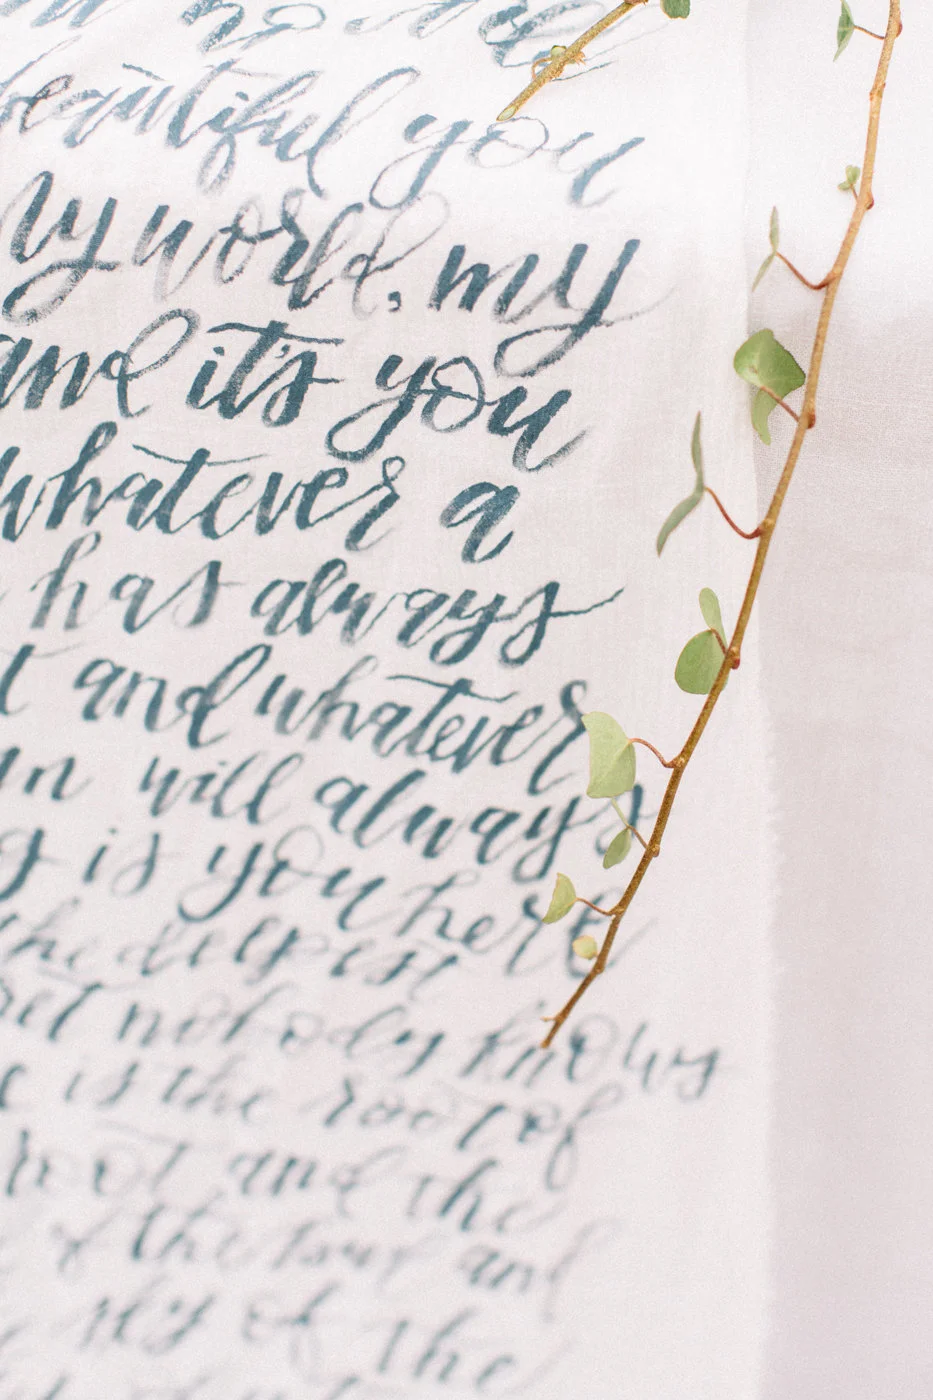 no
beautiful you
my world, my
and it's you
whatever a
has always
and whatever
will always
is you here
the deepest
nobody knows
is the root of
root and the
of the bud and
sky of the